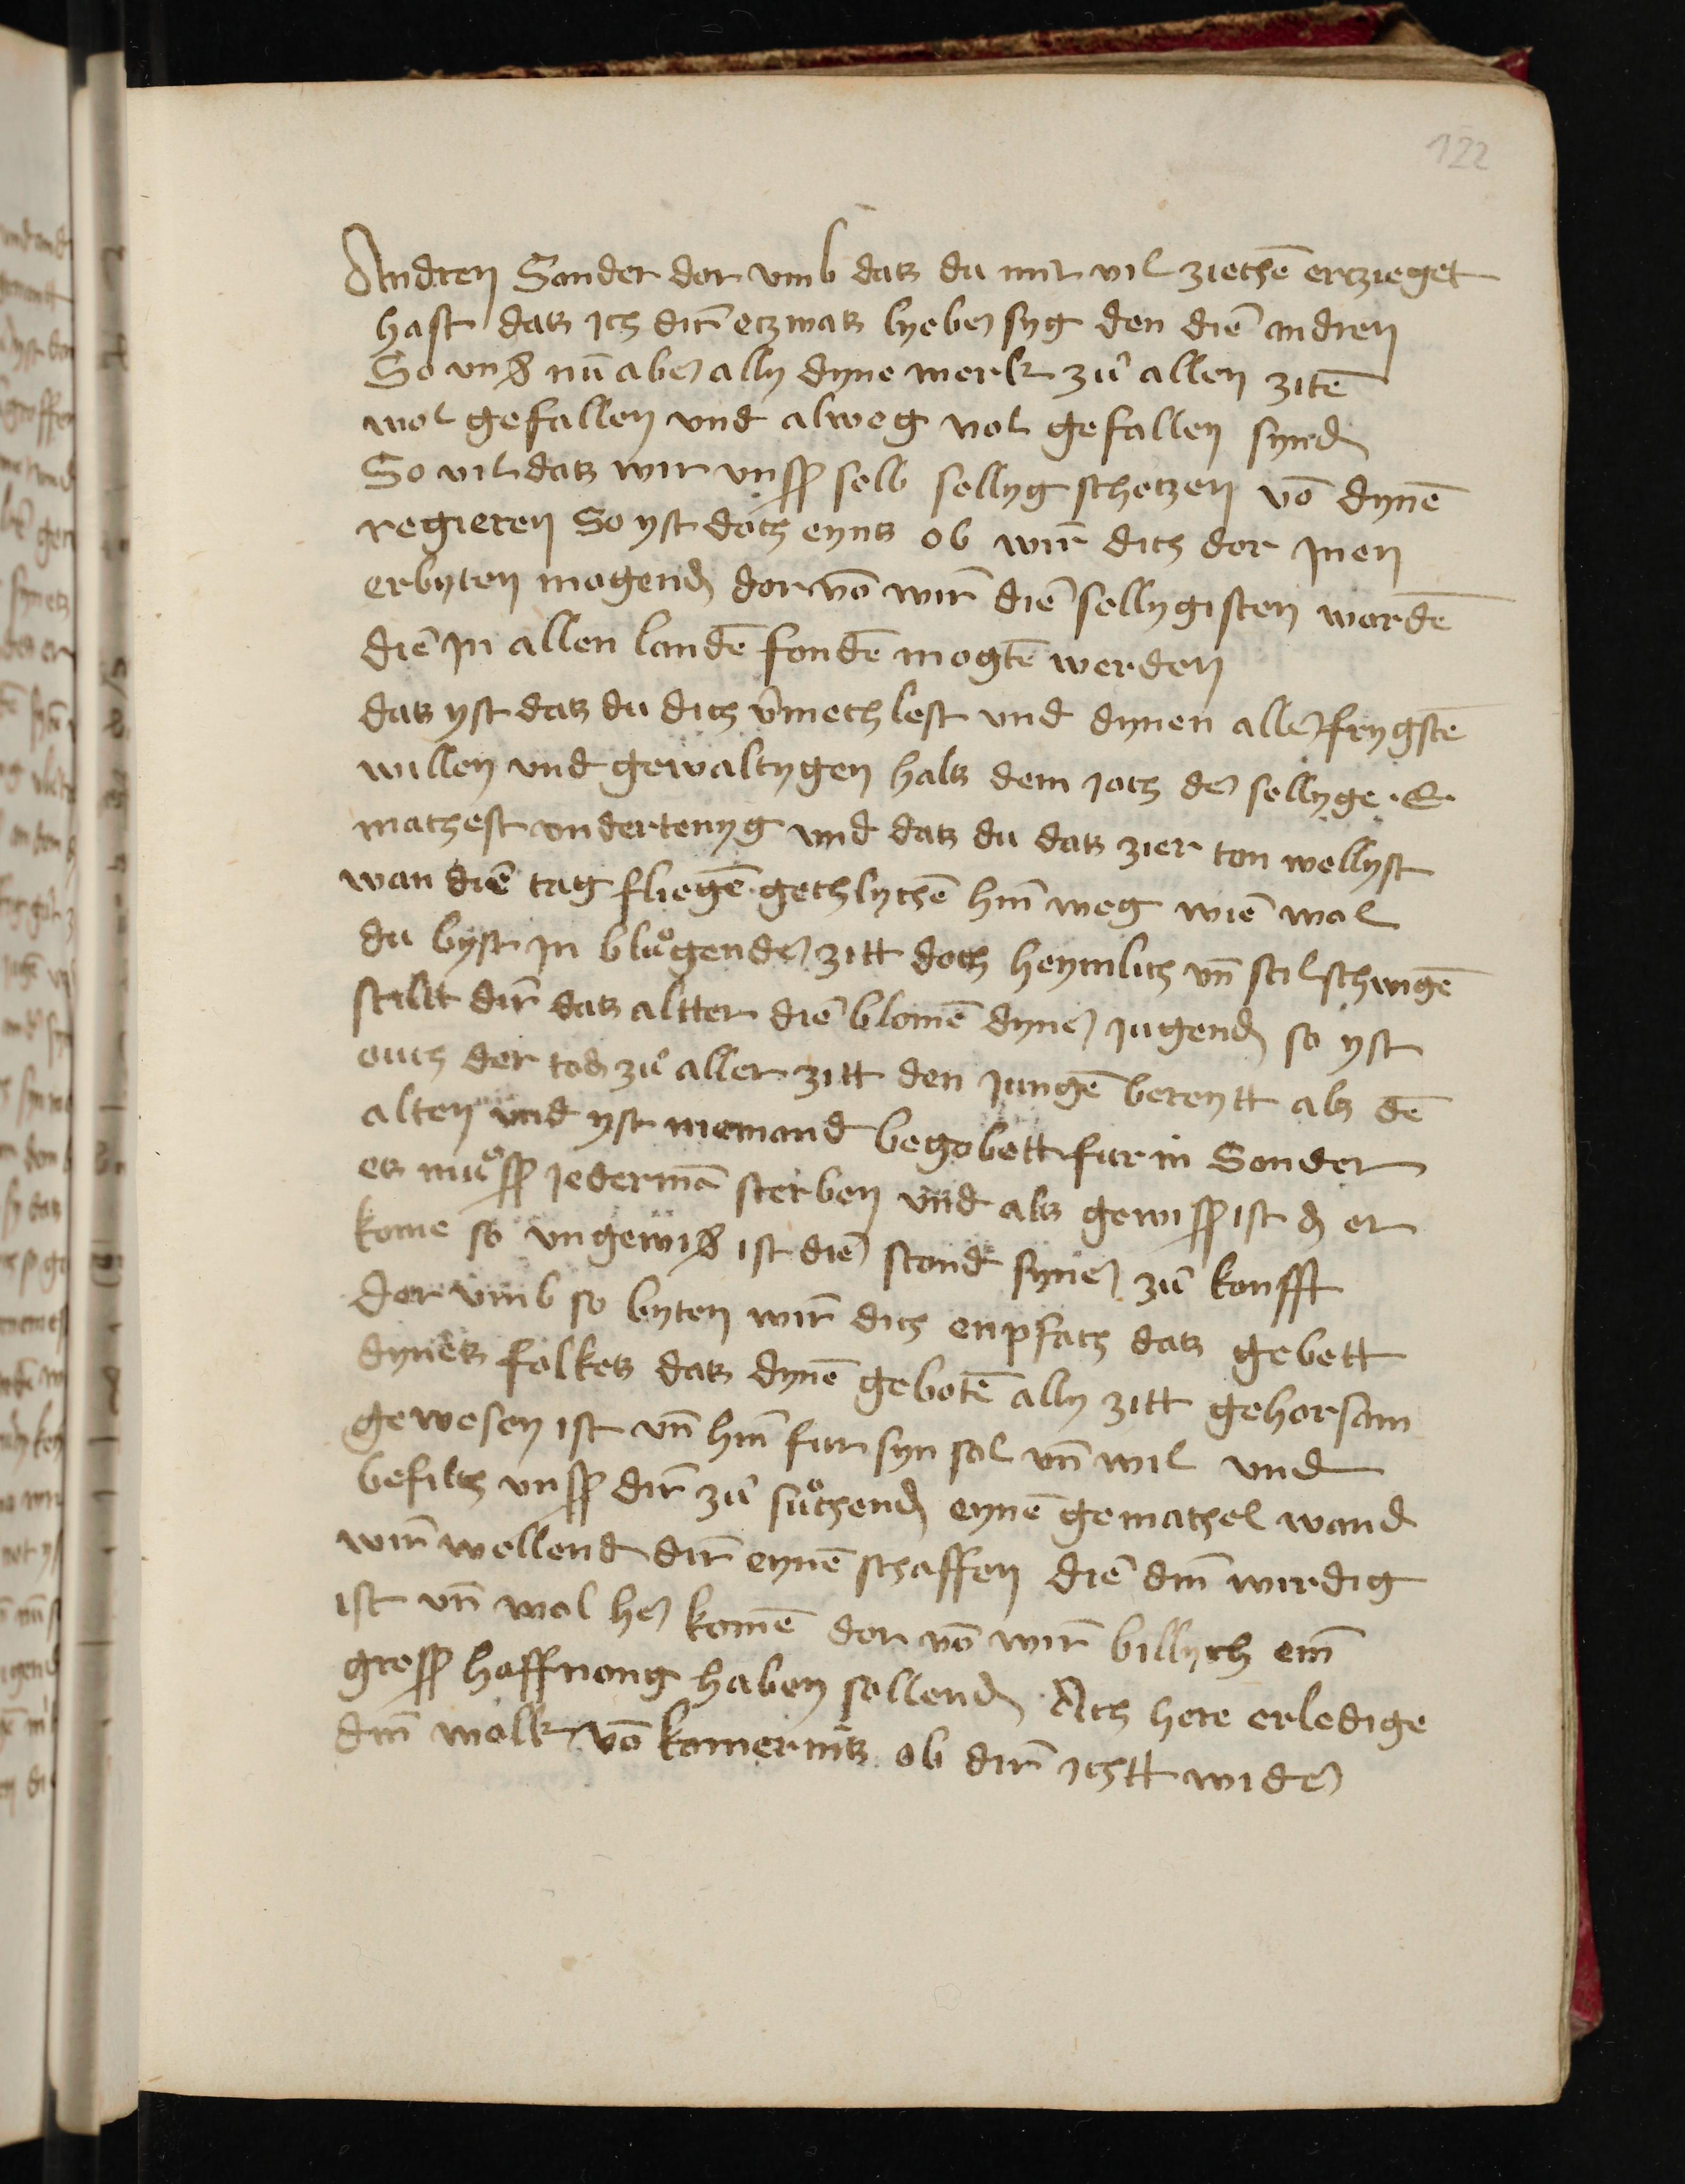 122
Andren Sonder dor vmb das du mir vil ziechē erczieget
hast das ich dir̄ eczwas lyeber syg den diē andren
So vnß nū aber ally dyne werk zů allen zitē
wol gefallen vnd alweg vol gefallen synd
So vil das wir vnß selb sellyg schetzen vō dynē
regieren So yst doch eyns ob wir̄ dich dor jnen
erbyten mogend dor vō wir̄ diē sellygisten wordē
diē jn allen landē fondē mogtē werden
das yst das du dich v̄mechlest vnd dynen aller frygstē
willen vnd gewaltygen hals dem joch der sellyge · E ·
machest vndertenyg vnd das du das zier ton wellyst
wan diē tag fliegē gechlychē hin̄ weg wiē wol
du byst jn blůgender zitt doch heymlich vn̄ stilschwigē
stilt dir̄ das altter diē blomē dyner jugend so yst
ouch der tod zů aller zitt den jungē bereytt als dē
alten vnd yst niemand begobett fur in Sonder
es můß jedermā sterben vnd als gewiß ist dz er
kome so vngewiß ist diē stond syner zů konfft
dor vmb so byten wir̄ dich enpfach das gebett
dynes folkes das dynē gebotē ally zitt gehorsam
gewesen ist vn̄ hin̄ fur syn sol vn̄ wil vnd
befilch vnß dir̄ zů sůchend eynē gemachel wand
wir̄ wellend dir̄ eynē schaffen diē din̄ wirdig
ist vn̄ wol her komē dor vō wir̄ billych ein̄
groß hoffnong haben sollend Ach here erledige
din̄ wolk vō komernis ob dir̄ ichtt wider